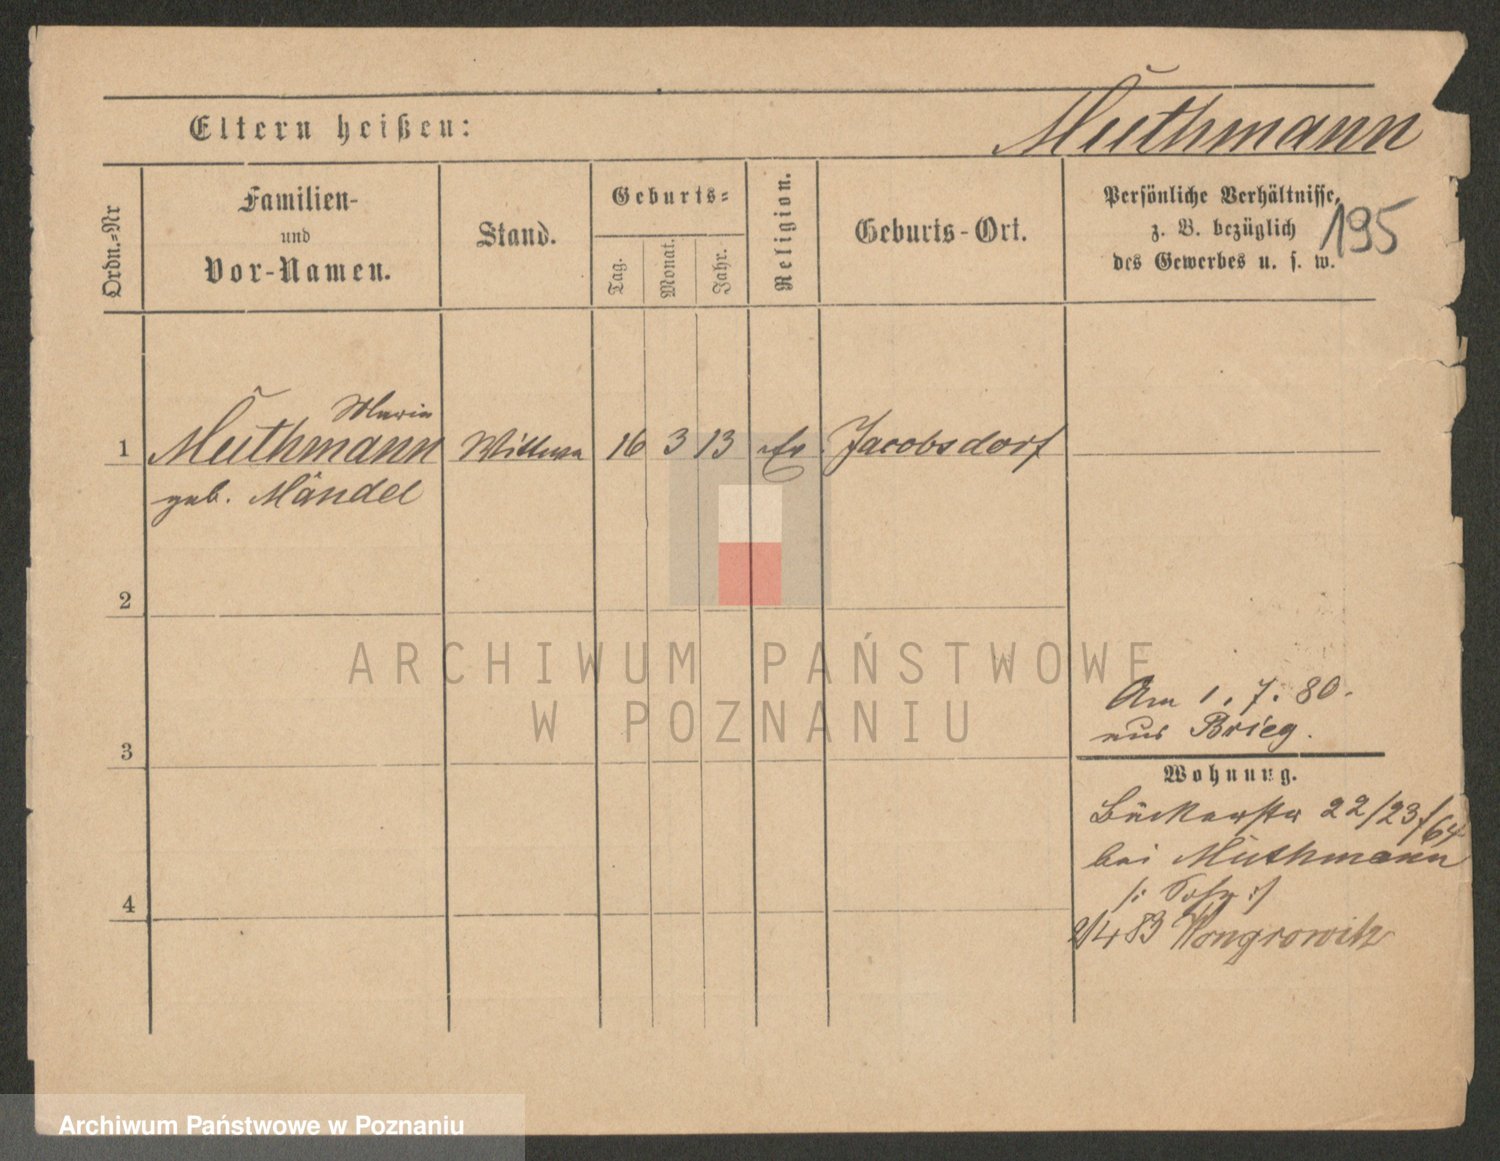 Eltern heißen:
Muthmann
195
Ordn.-Nr
Familien-
und
Vor-Namen.
Stand.
Geburts-
Tag.
Monat.
Jahr.
Religion.
Geburts-Ort.
Persönliche Verhältnisse,
z. B. bezüglich
des Gewerbes u. s. w.
Maria
1 Muthmann Wittwe 16 3 13 ev Jacobsdorf
geb. Mändel
2
3
4
Am 1. 7. 80.
aus Brieg.
Wohnung.
Bäckerstr 22/23/64
bei Muthmann
21/4 83 Wongrowitz
ARCHIWUM PAŃSTWOWE
W POZNANIU
Archiwum Państwowe w Poznaniu